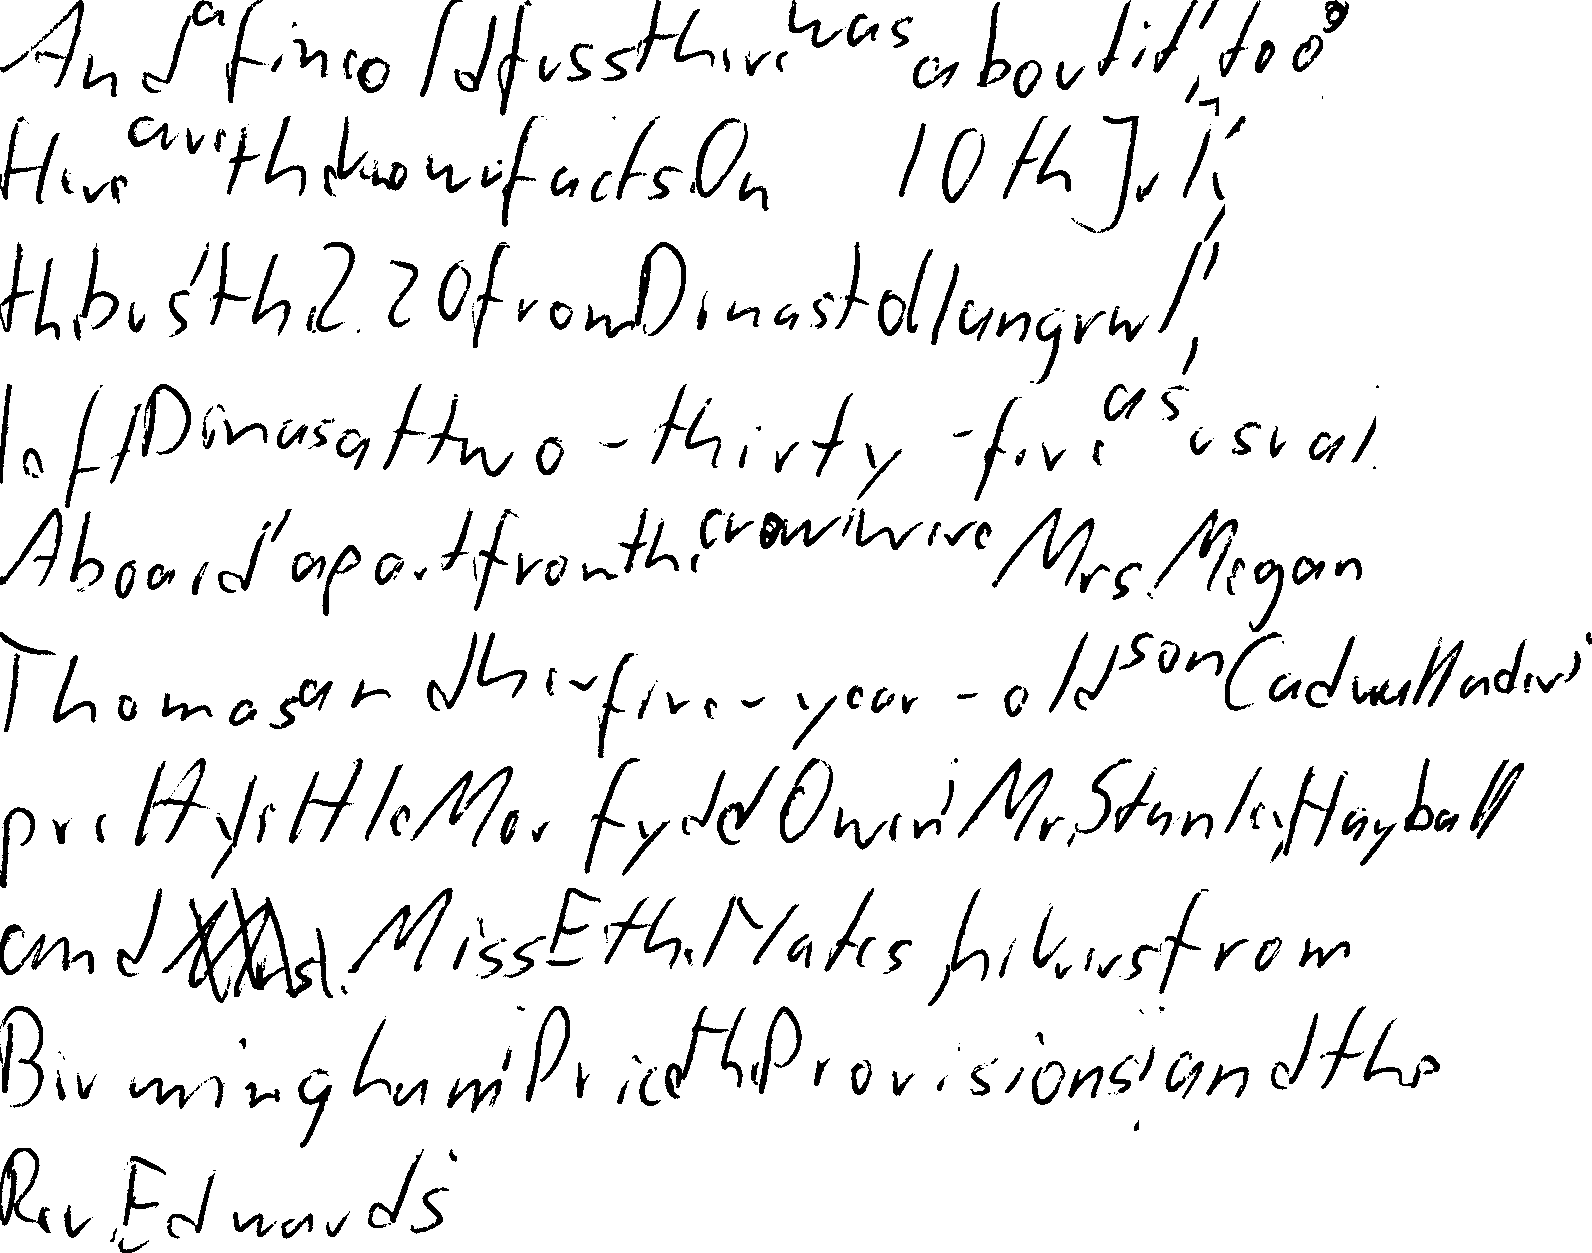 And a fine old fuss there was about it, too.
Here are the known facts. On 10th July,
the bus, the 2.20 from Dinas to Llangrwl,
left Dinas at two-thirty-five as usual.
Aboard, apart from the crew, were Mrs. Megan
Thomas and her five-year-old son Cadwallader;
pretty little Morfydd Owen; Mr. Stanley Hayball
and Miss Ethel Mates, hikers from
Birmingham; Price the Provisions; and the
Rev. Edwards.